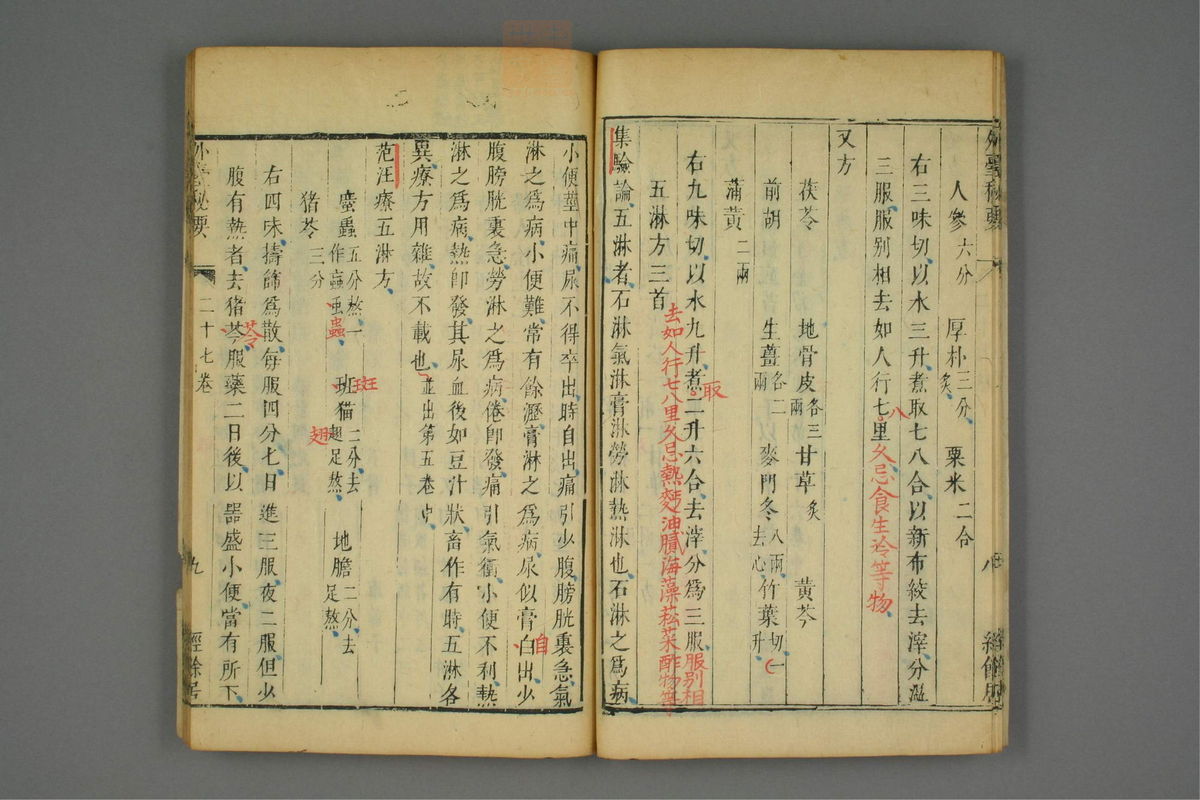 人參六分 厚朴三分炙 粟米二合
右三味切以水三升煮取七八合以新布絞去滓分温
三服服别相去如人行七里久忌食生冷等物
八
又方
茯苓 地骨皮各三兩 甘草炙 黄芩
前胡 生薑各二兩 麥門冬八兩去心 竹葉切一升
蒲黄二兩
右九味切以水九升煮二升六合去滓分爲三服服别相
取
去如人行七八里久忌熱麫油膩海藻菘菜酢物等
五淋方三首
集驗論五淋者石淋氣淋膏淋勞淋熱淋也石淋之爲病
小便莖中痛尿不得卒出時自出痛引少腹膀胱裏急氣
淋之爲病小便難常有餘瀝膏淋之爲病尿似膏白出少
自
腹膀胱裏急勞淋之爲病倦卽發痛引氣衝小便不利熱
淋之爲病熱卽發其尿血後如豆汁狀畜作有時五淋各
異療方用雜故不載也並出第五卷中
范汪療五淋方
䗪蟲五分熬一作蝱虫 斑猫二分去翅足熬 地膽二分去足熬
蟲 斑 翅
猪苓三分
右四味擣篩爲散每服四分匕日進三服夜二服但少
腹有熱者去猪苓服藥二日後以器盛小便當有所下
苓
外臺秘要 二十七卷 九 經餘居